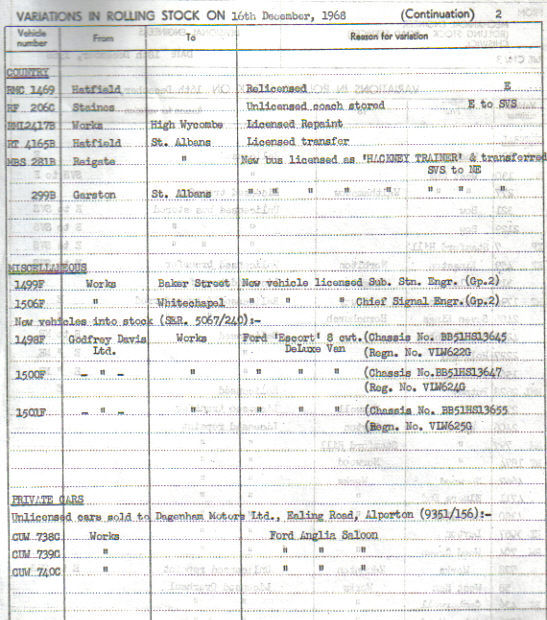 VARIATIONS IN ROLLING STOCK ON 16th December, 1968 (Continuation) 2
Vehicle number From To Reason for variation
COUNTRY
RMC 1469 Hatfield Relicensed E
RF 206C Staines Unlicensed coach stored E to SVS
RML2417B Works High Wycombe Licensed Repaint
RT 4165B Hatfield St. Albans Licensed transfer
MBS 281B Reigate " New bus licensed as 'HACKNEY TRAINER' & transferred
SVS to NE
299B Garston St. Albans " " " " " " " "
MISCELLANEOUS
1499F Works Baker Street New vehicle licensed Sub. Stn. Engr. (Gp.2)
1506F " Whitechapel " " " Chief Signal Engr.(Gp.2)
New vehicles into stock (SER. 5067/240):-
1498F Godfrey Davis Works Ford 'Escort' 8 cwt.(Chassis No. BB51HS13645
Ltd. DeLuxe Van (Regn. No. VLW622G
1500F - " - " " " " (Chassis No.BB51HS13647
(Reg. No. VLW624G
1501F - " - " " " " (Chassis No. BB51HS13655
(Regn. No. VLW625G
PRIVATE CARS
Unlicensed cars sold to Dagenham Motors Ltd., Ealing Road, Alperton (9351/156):-
CUW 738C Works Ford Anglia Saloon
CUW 739C " " " "
CUW 740C " " " "